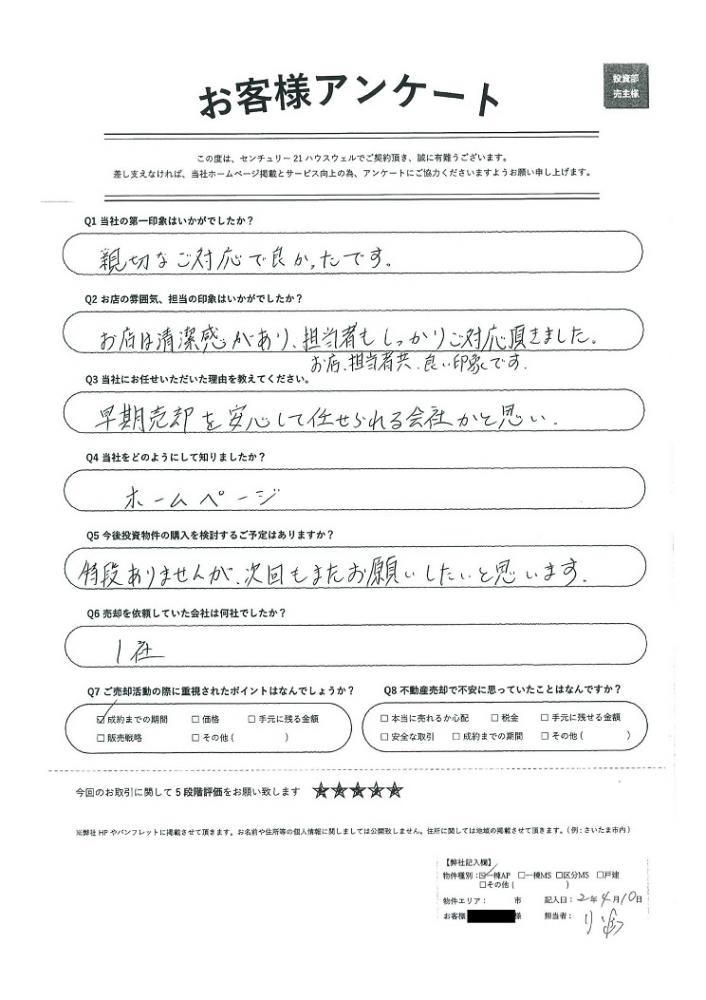 お客様アンケート
投資部
売主様
この度は、センチュリー21ハウスウェルでご契約頂き、誠に有難うございます。
差し支えなければ、当社ホームページ掲載とサービス向上の為、アンケートにご協力くださいますようお願い申し上げます。
Q1 当社の第一印象はいかがでしたか？
親切なご対応で良かったです。
Q2 お店の雰囲気、担当の印象はいかがでしたか？
お店は清潔感があり、担当者もしっかりご対応頂きました。
お店、担当者共、良い印象です。
Q3 当社にお任せいただいた理由を教えてください。
早期売却を安心して任せられる会社かと思い、
Q4 当社をどのようにして知りましたか？
ホームページ
Q5 今後投資物件の購入を検討するご予定はありますか？
特段ありませんが、次回もまたお願いしたいと思います。
Q6 売却を依頼していた会社は何社でしたか？
1社
Q7 ご売却活動の際に重視されたポイントはなんでしょうか？
☑成約までの期間 □価格 □手元に残る金額
□販売戦略 □その他（ ）
Q8 不動産売却で不安に思っていたことはなんですか？
□本当に売れるか心配 □税金 □手元に残せる金額
□安全な取引 □成約までの期間 □その他（ ）
今回のお取引に関して5段階評価をお願い致します ★★★★★
※弊社HPやパンフレットに掲載させて頂きます。お名前や住所等の個人情報に関しましては公開致しません。住所に関しては地域の掲載させて頂きます。（例：さいたま市内）
【弊社記入欄】
物件種別：☑一棟AP □一棟MS □区分MS □戸建
□その他（ ）
物件エリア： 市 記入日：2年4月10日
お客様 様 担当者：